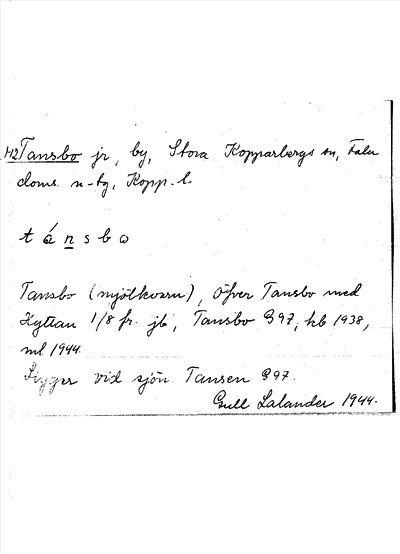 42 Tansbo jr, by, Stora Kopparbergs sn, Falu
doms. n-by, Kopp. l.
t á n s b ω
Tansbo (mjölkvarn), Öfver Tansbo med
Hyttan 1/8 fr. jb, Tansbo G97, kb 1938,
ml 1944.
Ligger vid sjön Tansen G97.
Gull Lalander 1944.